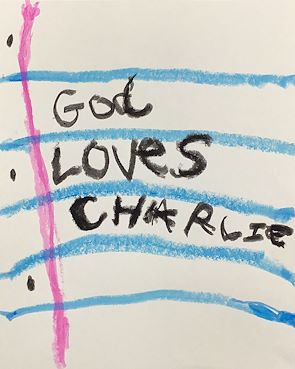 God
Loves
CHARLIE